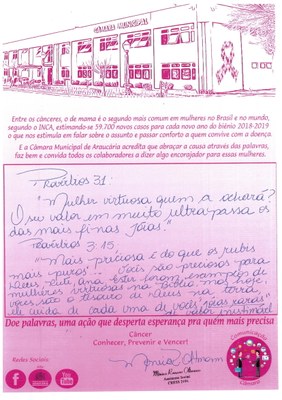 CÂMARA MUNICIPAL
Entre os cânceres, o de mama é o segundo mais comum em mulheres no Brasil e no mundo,
segundo o INCA, estimando-se 59.700 novos casos para cada novo ano do biênio 2018-2019
o que nos estimula em falar sobre o assunto e passar conforto a quem convive com a doença.
E a Câmara Municipal de Araucária acredita que abraçar a causa através das palavras,
faz bem e convida todos os colaboradores a dizer algo encorajador para essas mulheres.
Provérbios 31
"Mulher virtuosa quem a achará?
O seu valor em muito ultrapassa os
das mais finas jóias."
Provérbios 3:15
"Mais preciosa é do que os rubis
mais puros"... Vocês são preciosas para
Deus, Ester foram exemplos de
mulheres virtuosas na Bíblia, mas hoje
vocês são o tesouro de Deus na terra,
ele cuida de cada uma de vocês "jóias raras"
de valor inestimável
Doe palavras, uma ação que desperta esperança pra quém mais precisa
Câncer
Conhecer, Prevenir e Vencer!
Redes Sociais
You
Tube